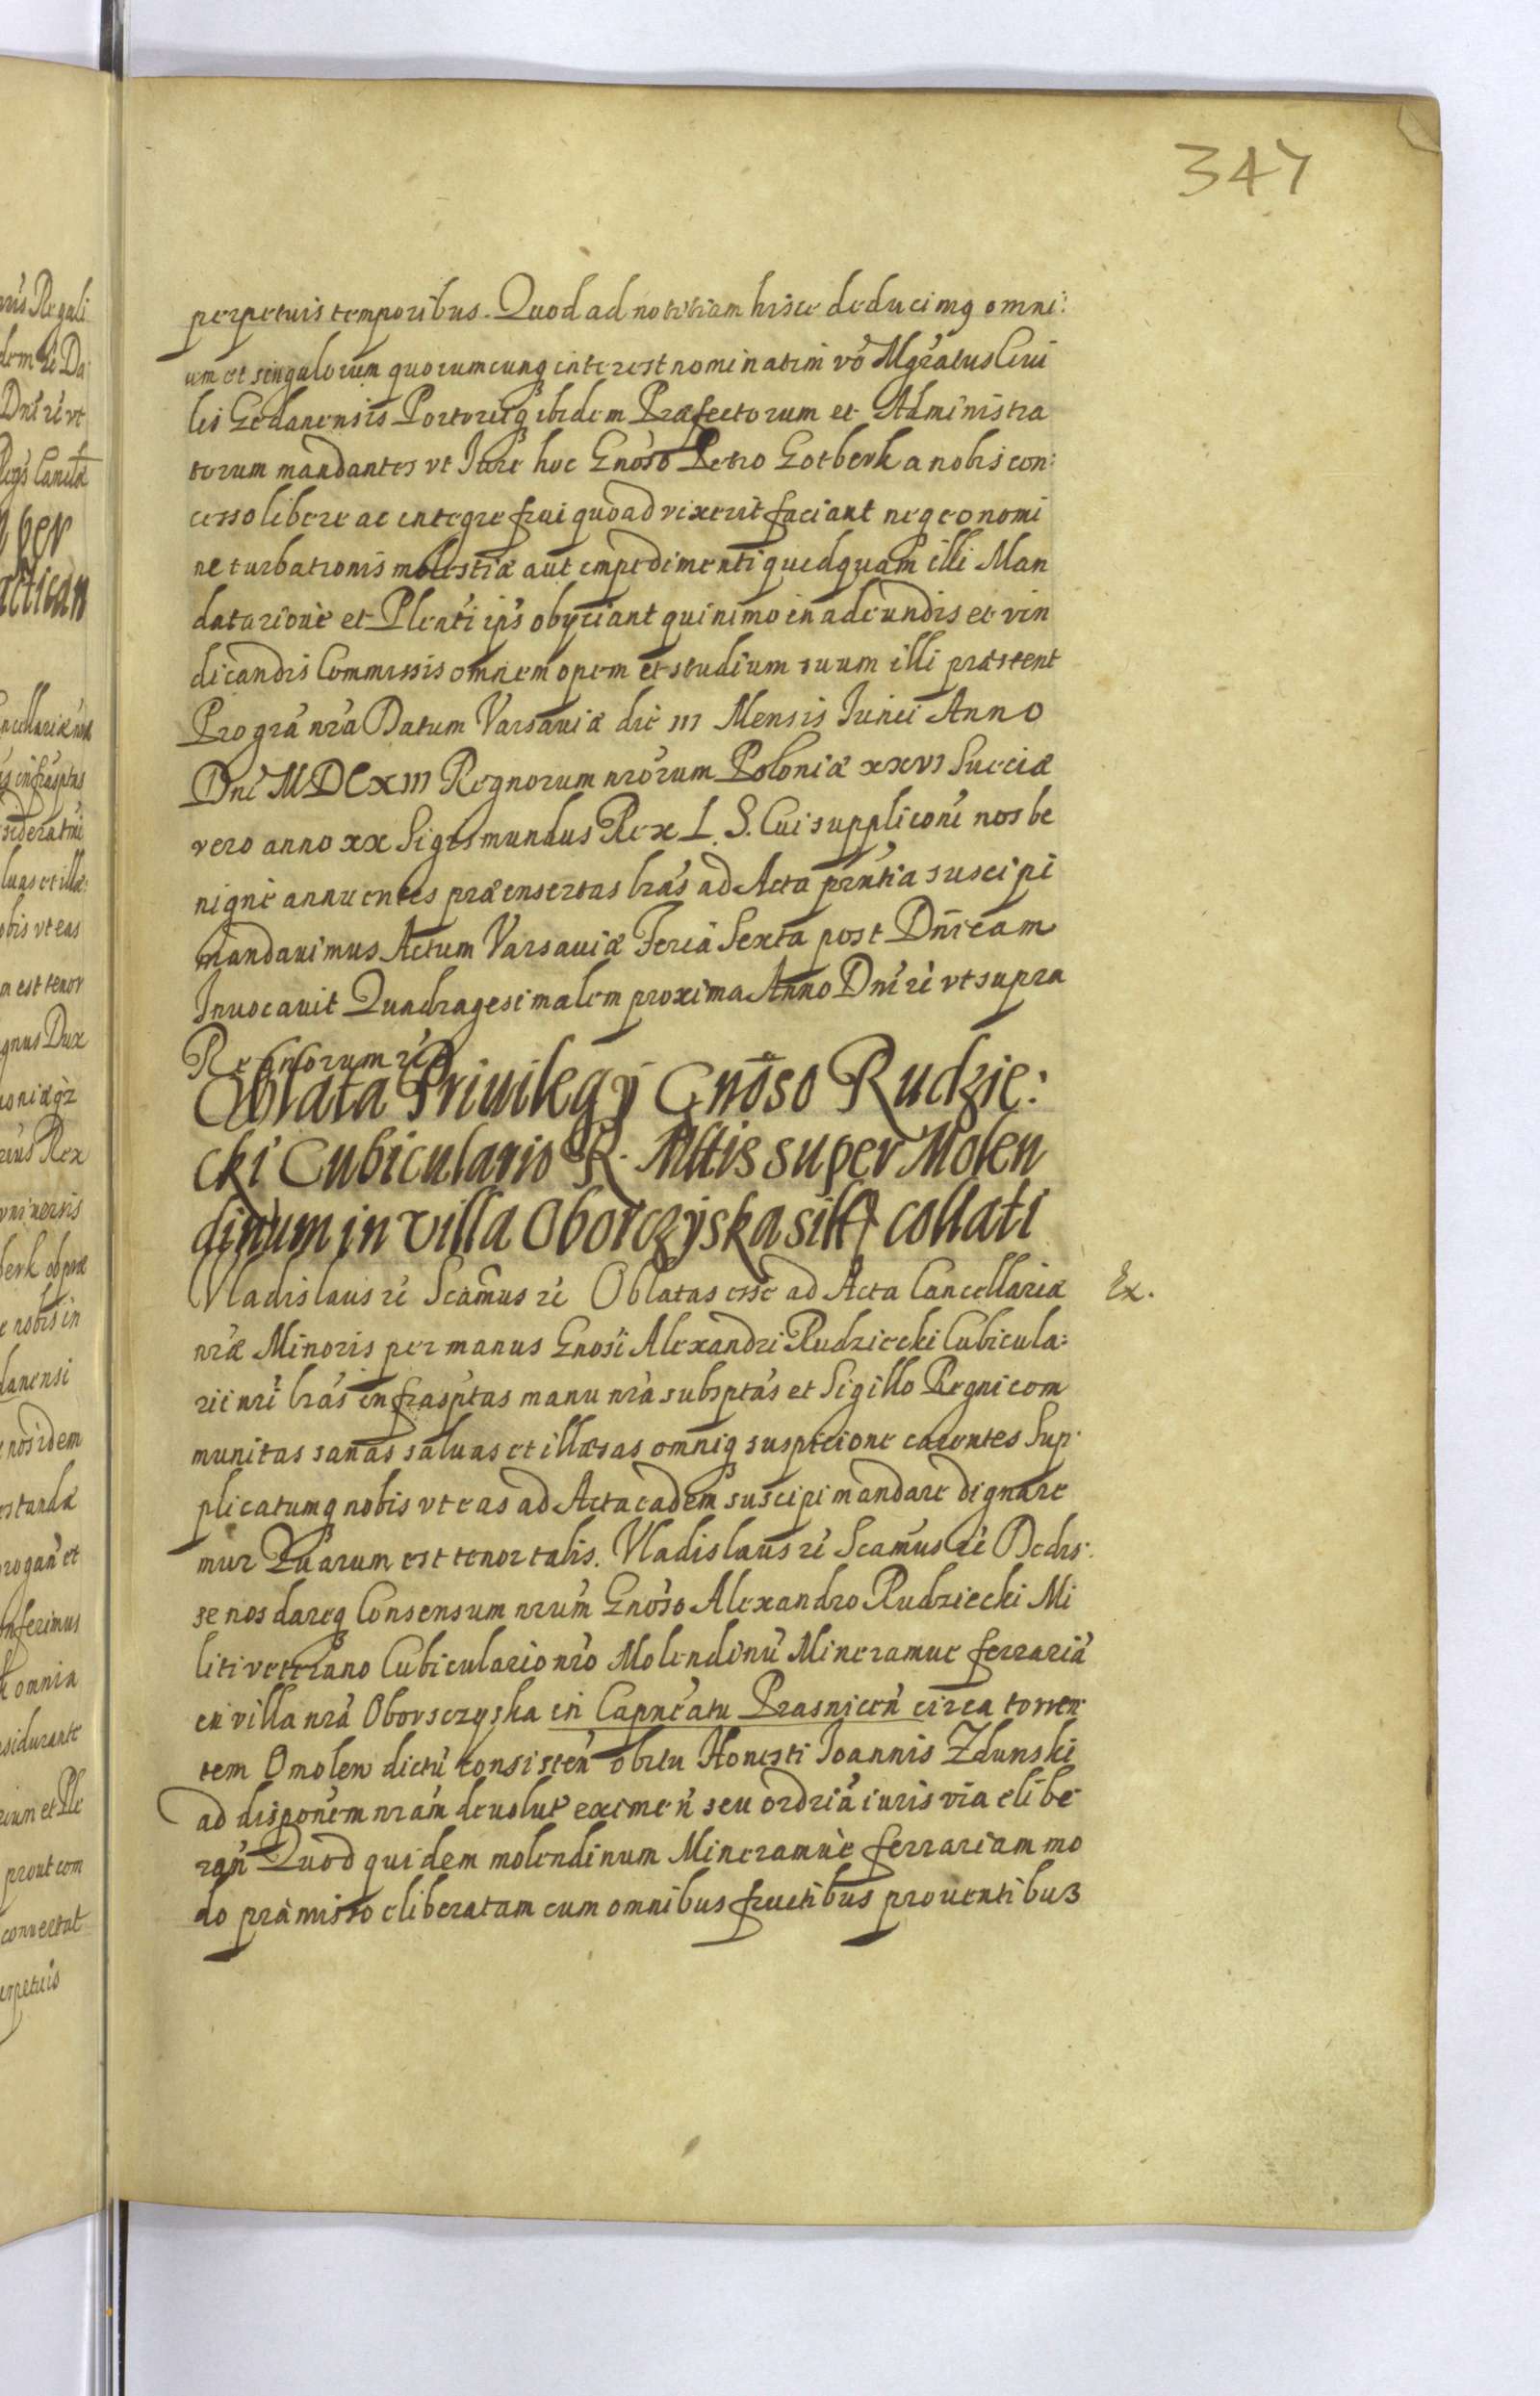 347
perpetuis temporibus. Quod ad notitiam hisce deducimq omni:
um et singulorum quorumcunq interest nominatim vo Mgratus Ciui
lis Gedanensis Portoriiq ibidem Præfectorum et Administra
torum mandantes vt Iure hoc Gnoso Petro Gotberk a nobis con:
cesso libere ac integre frui quoad vixerit faciant neq eo nomi
ne turbationis molestiæ aut impedimenti quidquam illi Man
datarioue et Plenti ips obyciant quinimo in adeundis et vin
dicandis Commissis omnem opem et studium suum illi præstent
Pro gra nra Datum Varsauiæ die III Mensis Iunii Anno
Dni MDCXIII Regnorum nrorum Poloniæ XXVI Sueciæ
vero anno XX Sigismundus Rex L. S. Cui suppliconi nos be
nigne annuentes præinsertas lras ad Acta prntia suscipi
mandauimus Actum Varsauiæ Feria Sexta post Dnicam
Inuocauit Quadragesimalem proxima Anno Dni zc vt supra
Regnorum zc
Oblata Priuilegÿ Gnoso Rudzie:
cki Cubiculario R. Mttis super Molen
dinum in villa Oborczÿska sitt collati
Vladislaus zc Scamus zc Oblatas esse ad Acta Cancellariæ
Ex.
nræ Minoris per manus Gnosi Alexandri Rudziecki Cubicula:
rii nri lras infrasptas manu nra subsptas et Sigillo Regni com
munitas sanas saluas et illæsas omniq suspicione carentes Sup
plicatumq nobis vt eas ad Acta eadem suscipi mandare dignare
mur Quarum est tenor talis. Vladislaus zc Scamus zc Dedis:
se nos dareq Consensum nrum Gnoso Alexandro Rudziecki Mi
liti veterano Cubiculario nro Molendinu Mineramue ferraria
in villa nra Oborsczyska in Capneatu Prasnicen circa torren
tem Omolew dictu consisten obitu Honesti Joannis Zdunski
ad disponem nram deuolut eximen seu ordria iuris via elibe
ran Quod quidem molendinum Mineramue ferrariam mo
do præmisso eliberatam cum omnibus fructibus prouentibus